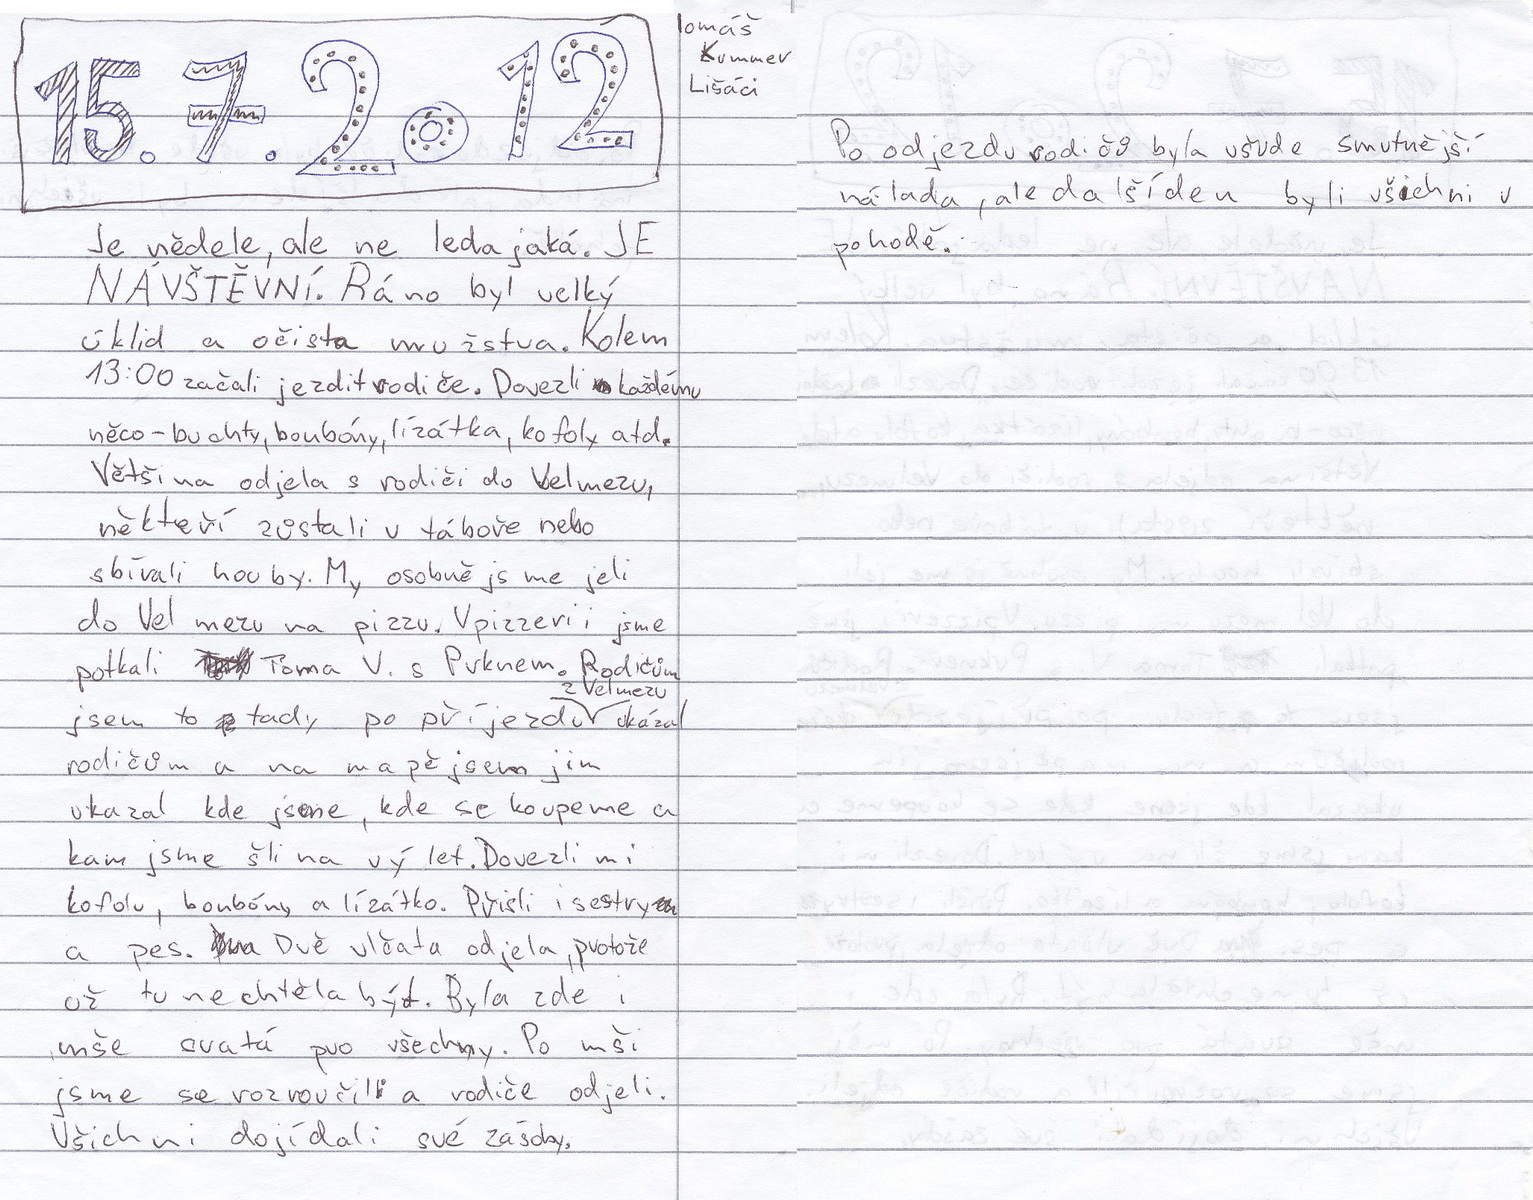 15.7.2012
Tomáš
Kummer
Lišáci
Je neděle, ale ne ledajaká. JE
NÁVŠTĚVNÍ. Ráno byl velký
úklid a očista mužstva. Kolem
13:00 začali jezdit rodiče. Dovezli každému
něco - buchty, bonbóny, lízátka, kofoly atd.
Většina odjela s rodiči do Velmezu,
někteří zůstali v táboře nebo
sbírali houby. My osobně jsme jeli
do Velmezu na pizzu. V pizzerii jsme
potkali Toma V. s Puknem. Rodičům
z Velmezu
jsem to tady po příjezdu ukázal
rodičům a na mapě jsem jim
ukazal kde jsme, kde se koupeme a
kam jsme šli na výlet. Dovezli mi
kofolu, bonbóny a lízátko. Přišli i sestry
a pes. Dvě vlčata odjela, protože
už tu nechtěla být. Byla zde i
mše svatá pro všechny. Po mši
jsme se rozroučili a rodiče odjeli.
Všichni dojídali své zásoby.
Po odjezdu rodičů byla všude smutnější
nálada, ale další den byli všichni v
pohodě.